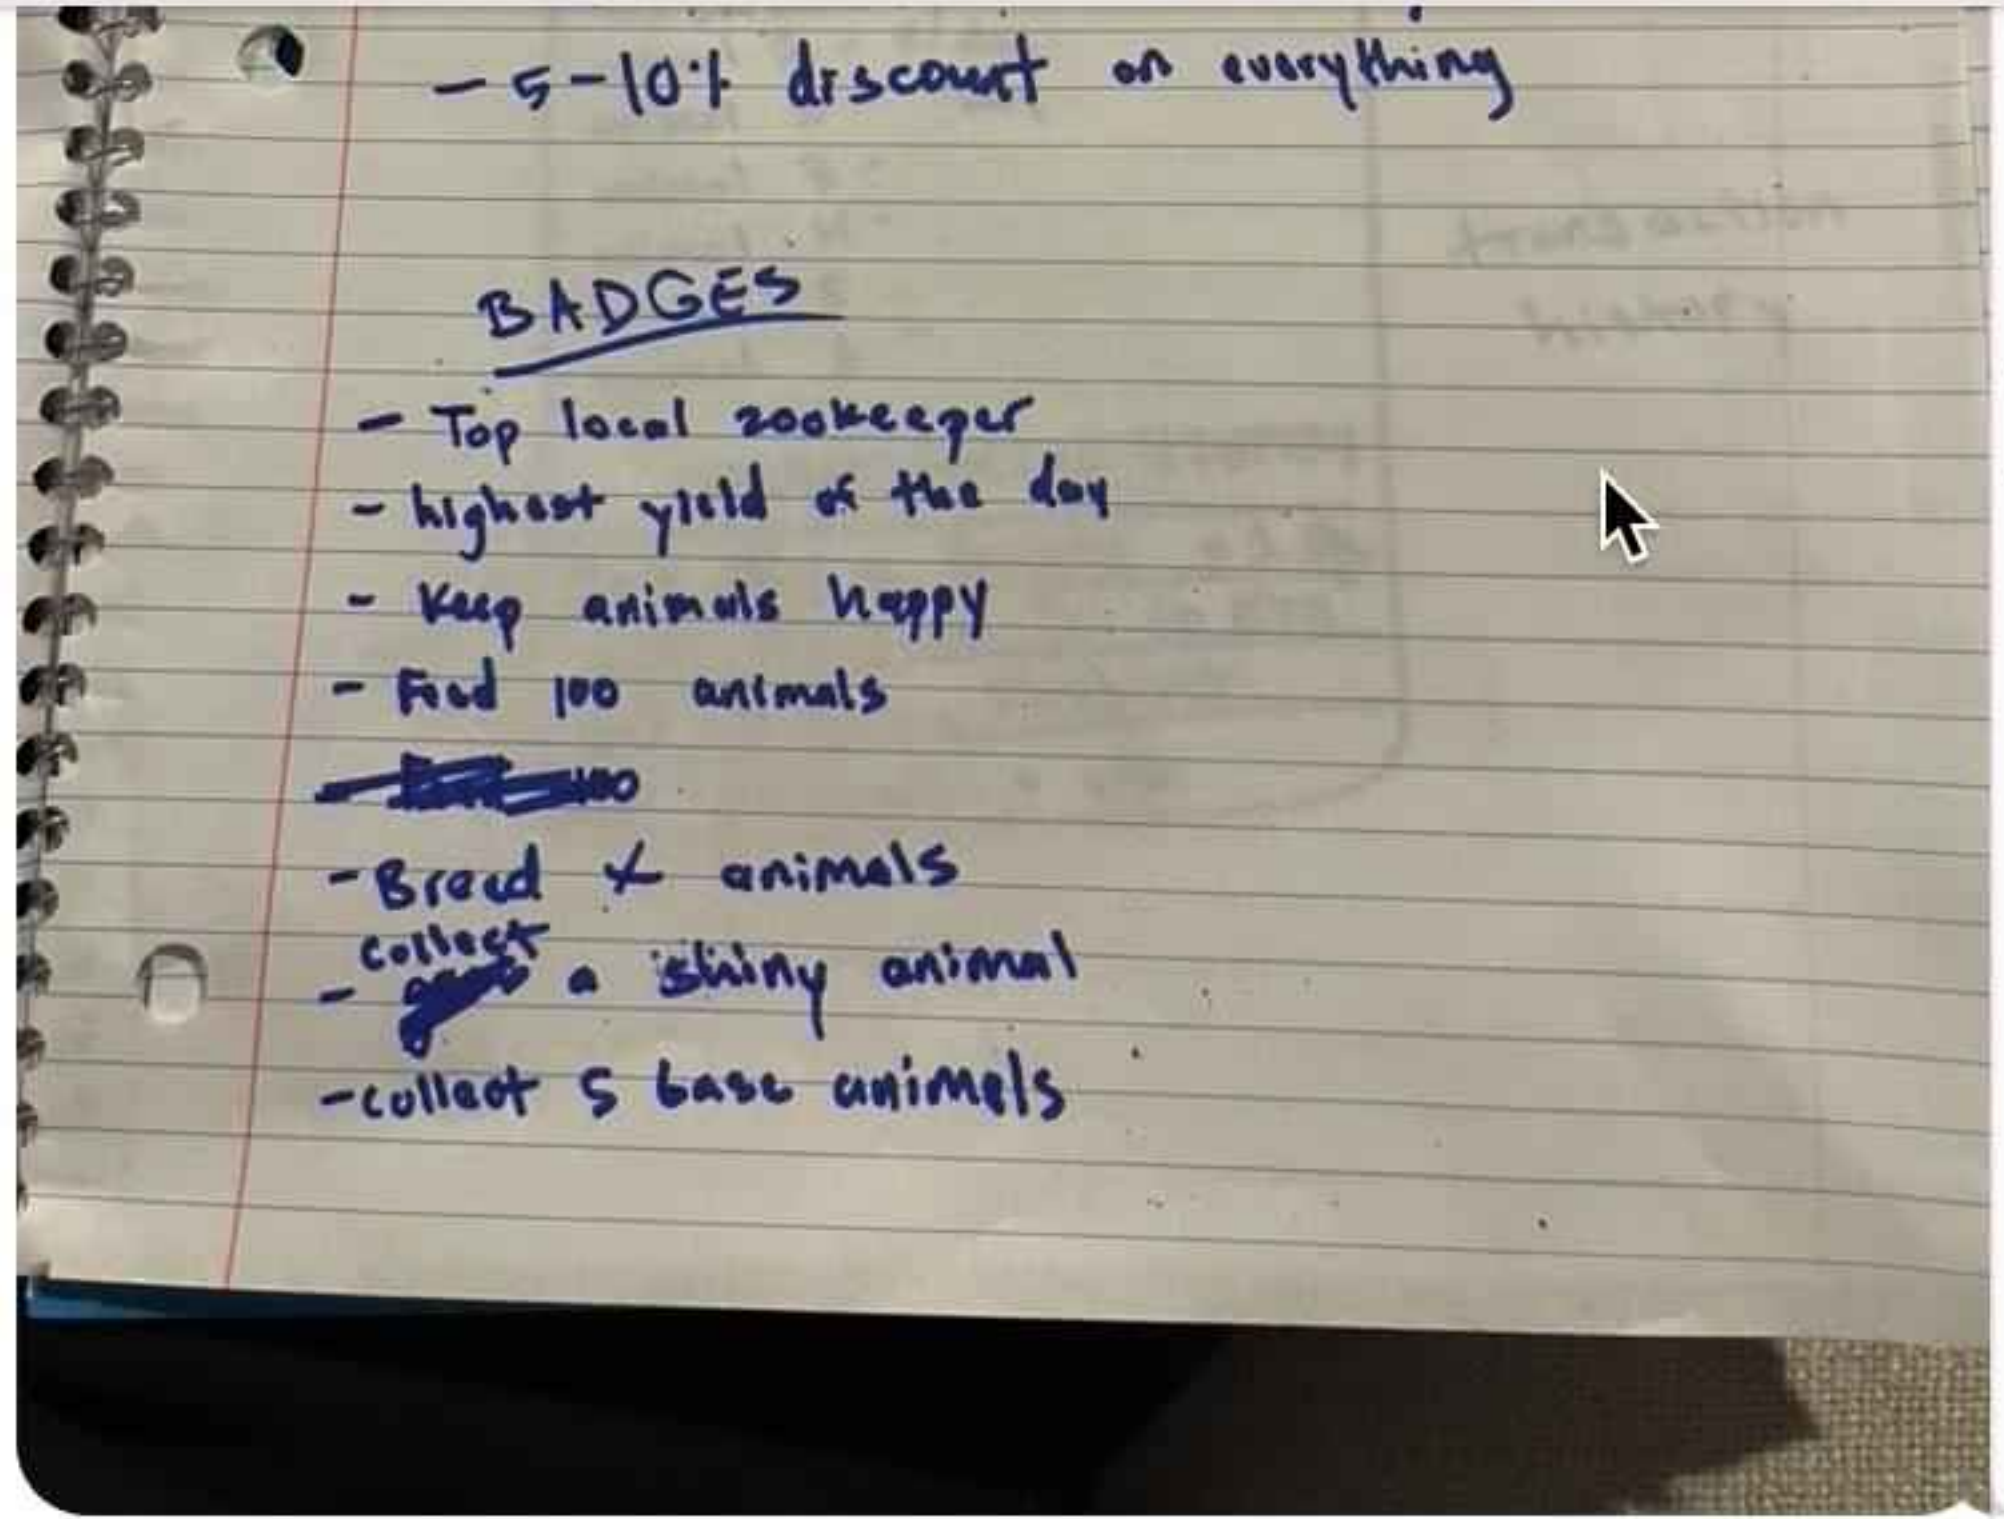 - 5-10% discount on everything
BADGES
- Top local zookeeper
- highest yield of the day
- Keep animals happy
- Feed 100 animals
100
- Breed x animals
collect
- a shiny animal
- collect 5 base animals